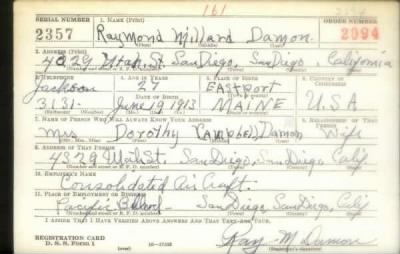 161
SERIAL NUMBER 1. NAME (Print) ORDER NUMBER
2357 Raymond Millard Damon. 2094
(First) (Middle) (Last)
2. ADDRESS (Print)
4329 Utah St. San Diego, San Diego, California
3. TELEPHONE 4. AGE IN YEARS 5. PLACE OF BIRTH 6. COUNTRY OF CITIZENSHIP
Jackson 27 Eastport
DATE OF BIRTH
3131. June 19 1913 MAINE U.S.A
7. NAME OF PERSON WHO WILL ALWAYS KNOW YOUR ADDRESS 8. RELATIONSHIP OF THAT PERSON
Mrs Dorothy Campbell Damon Wife
(Mr., Mrs., Miss) (First) (Middle) (Last)
9. ADDRESS OF THAT PERSON
4329 Utah St. San Diego, San Diego Calif.
10. EMPLOYER'S NAME
Consolidated Air Craft.
11. PLACE OF EMPLOYMENT OR BUSINESS
Pacific Blvd- San Diego, San Diego, Calif
I AFFIRM THAT I HAVE VERIFIED ABOVE ANSWERS AND THAT THEY ARE TRUE.
REGISTRATION CARD
D. S. S. Form 1 16-17105 Ray M Damon